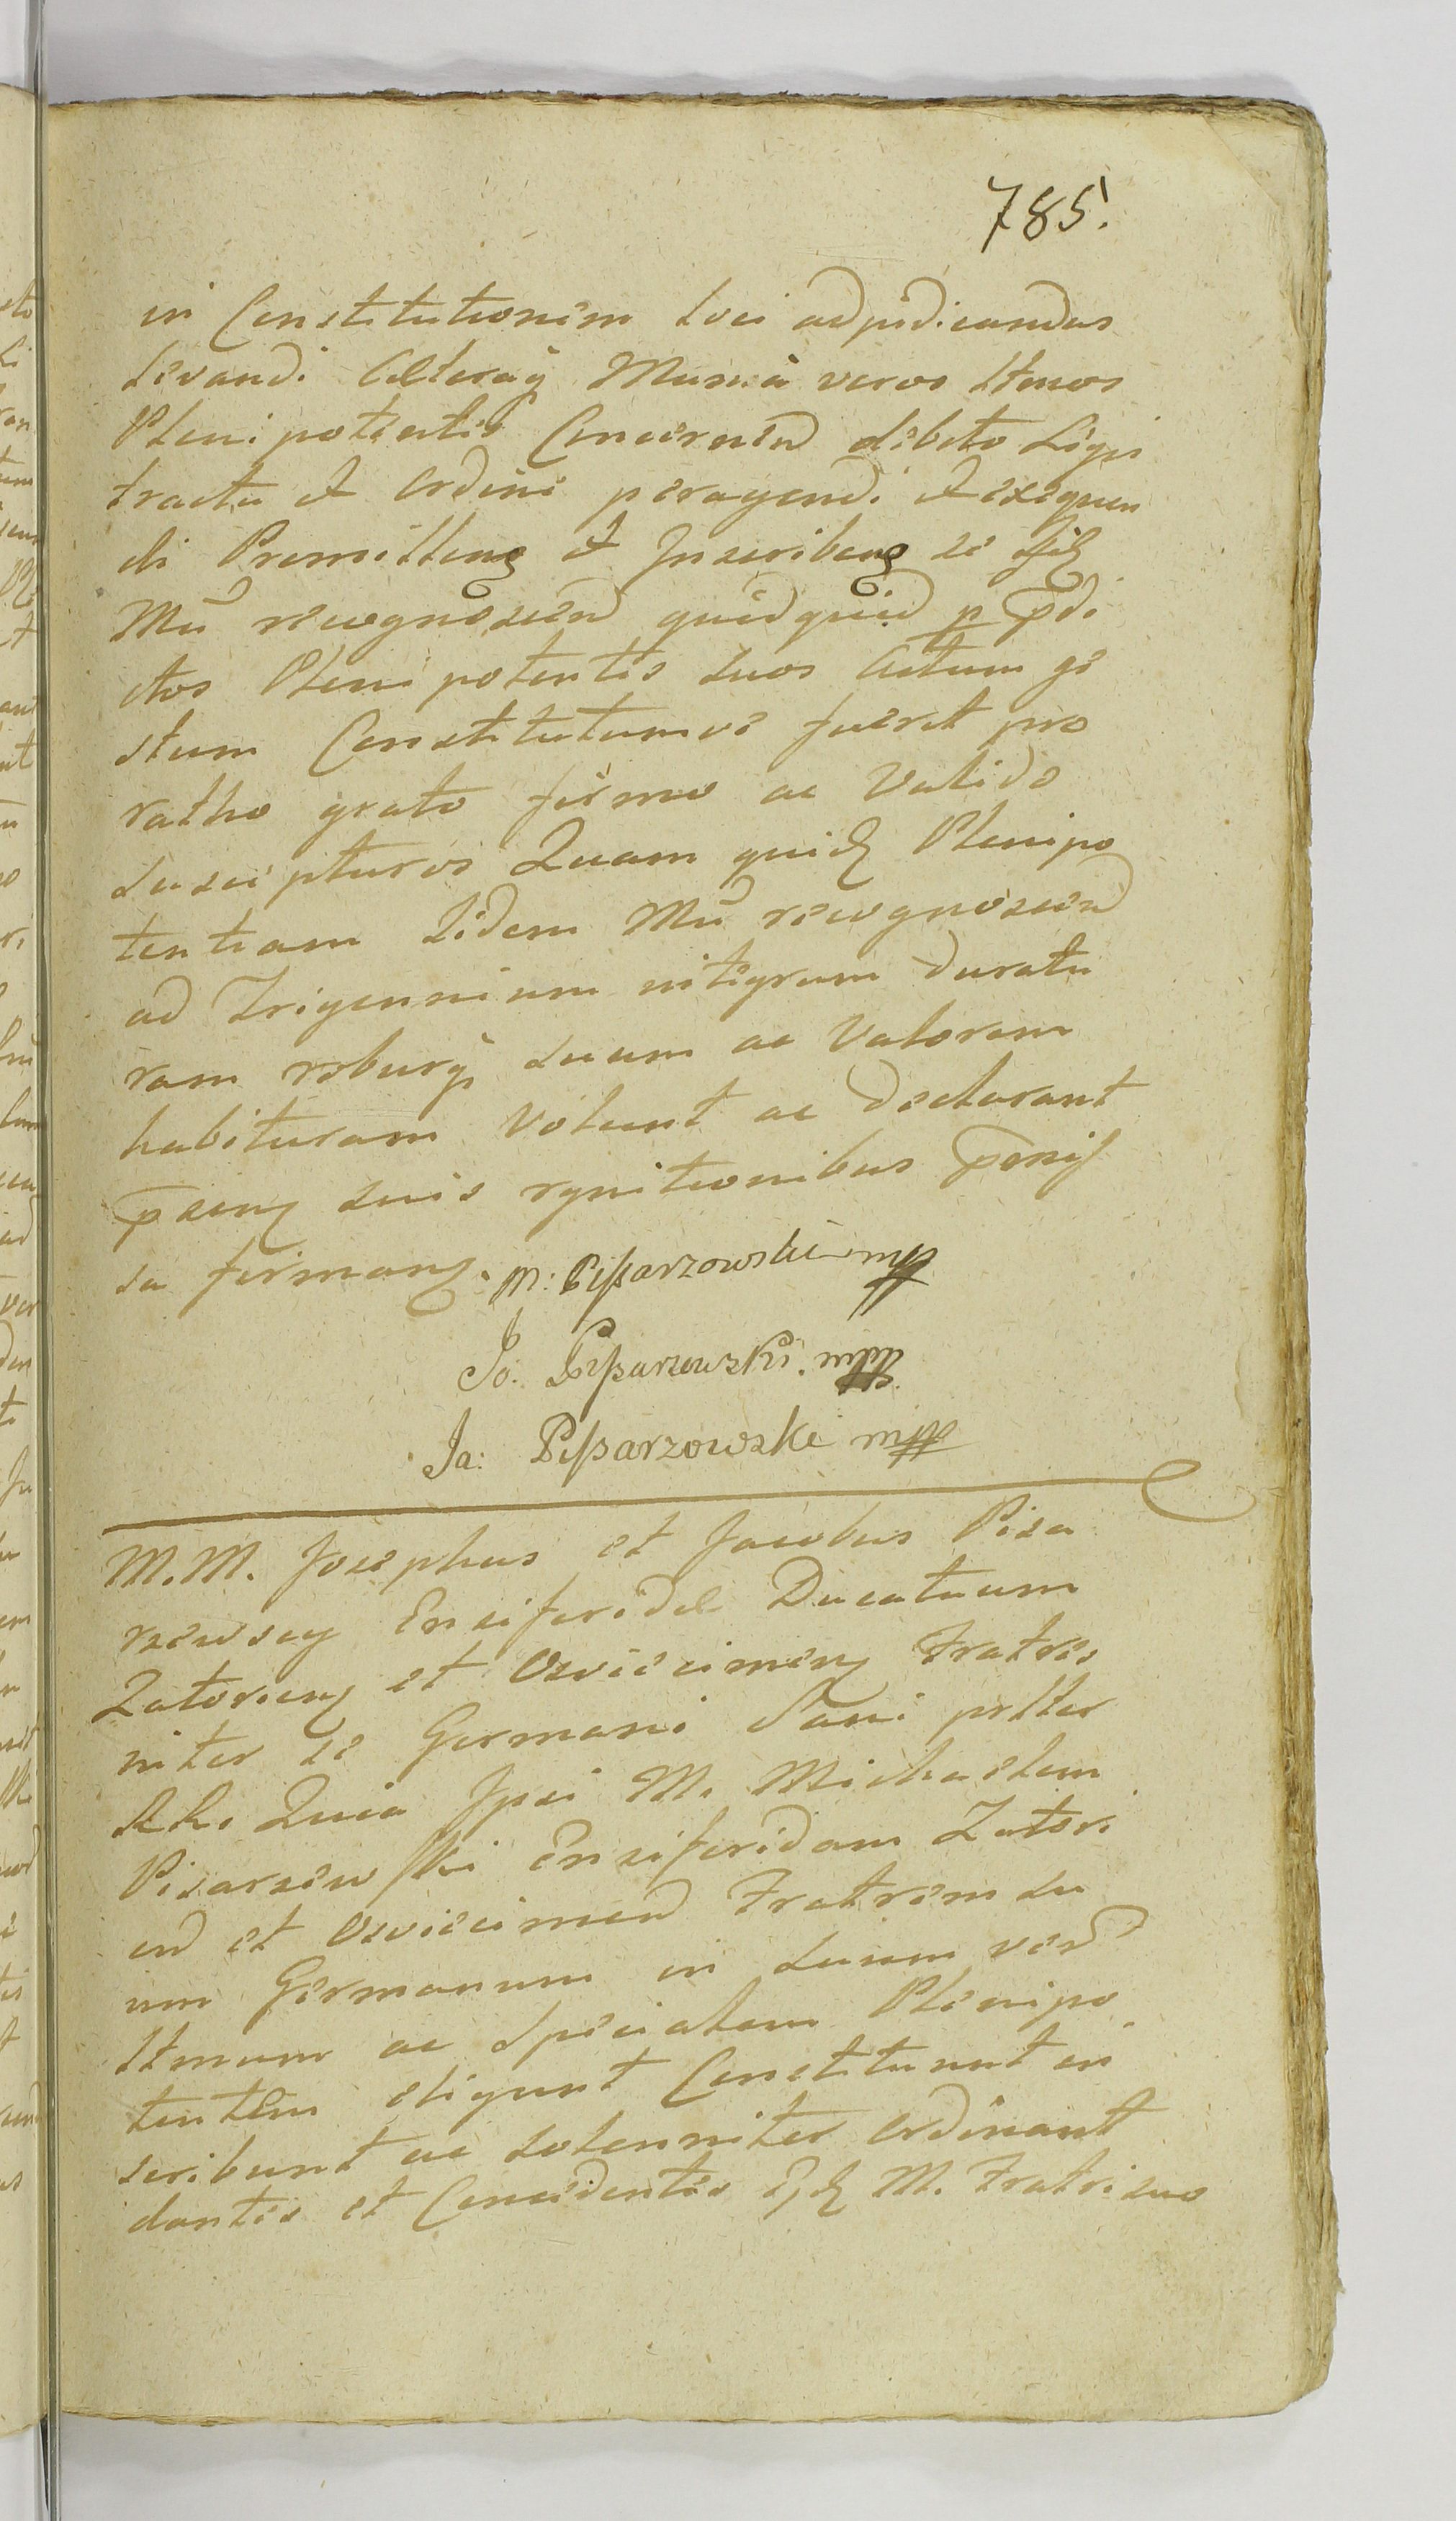 785.
in Constitutionem loci adjudicandas
levandi Caeteraq Munia veros ltmos
Plenipotentes Concernen debito Legis
tractu et ordine peragendi et exequen
di Promitten et Inscriben se
Mci recognoscen quidquid p pdi
ctos Plenipotentes suos Actum ge
stum Constitutumve fuerit pro
ratho grato firmo ac Valido
suscepturos Quam quid Plenipo
tentiam Iidem Mci recognoscen
ad Trigennium integrum duratu
ram roburq suum ac Valorem
habituram Volunt ac declarant
suis rgnitionibus
su firman. M: Pißarzowski mpp
Jo: Pißarzowski mpp
Ja: Pißarzowski mpp
M.M. Josephus et Jacobus Pisa
rzewscy Ensiferidae Ducatuum
Zatorien et Oswiecimen Fratres
inter se Germani Sani pltter
Rh. Quia Ipsi M. Michaelem
Pisarzewski Ensiferidam Zatori
en et Oswiecimen Fratrem su
um Germanum in suum ver
ltmum ac Specialem Plenipo
tentem eligunt Constituunt in
scribunt ac solenniter ordinant
dantes et Concedentes M. Fratri suo